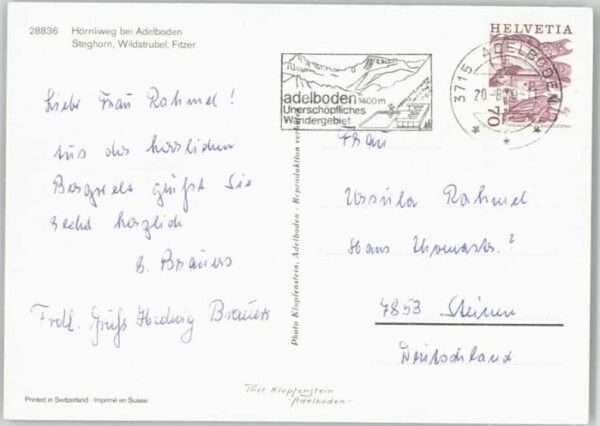 28836 Hörnliweg bei Adelboden
Steghorn, Wildstrubel, Fitzer
HELVETIA
3715 ADELBODEN 1
20-8
70
adelboden 1400 m
Unerschöpfliches
Wandergebiet
Liebe Frau Rahmel!
Aus der herrlichen
Bergwelt grüßt Sie
recht herzlich
B. Brauers
Frdl. Grüß Hedwig Brauers
Photo Klopfenstein, Adelboden - Reproduktion
Frau
Ursula Rahmel
Hans Thomastr. 2
7853 Steinen
Deutschland
Thos Klopfenstein
Adelboden-
Printed in Switzerland - Imprimé en Suisse